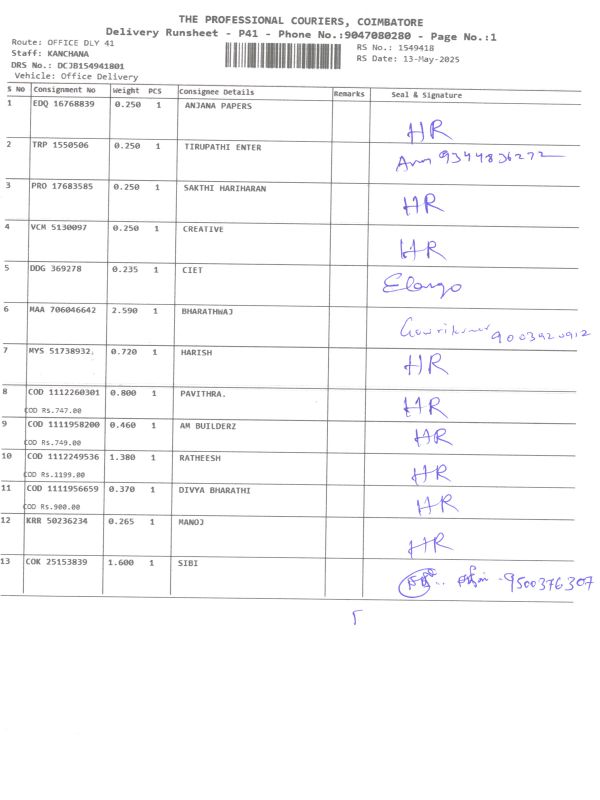 THE PROFESSIONAL COURIERS, COIMBATORE
Delivery Runsheet - P41 - Phone No.:9047080280 - Page No.:1
Route: OFFICE DLY 41
Staff: KANCHANA
DRS No.: DCJB154941801
Vehicle: Office Delivery
RS No.: 1549418
RS Date: 13-May-2025
S No Consignment No Weight PCS Consignee Details Remarks Seal & Signature
1 EDQ 16768839 0.250 1 ANJANA PAPERS HR
2 TRP 1550506 0.250 1 TIRUPATHI ENTER 9344836272
3 PRO 17683585 0.250 1 SAKTHI HARIHARAN HR
4 VCM 5130097 0.250 1 CREATIVE HR
5 DDG 369278 0.235 1 CIET Elango
6 MAA 706046642 2.590 1 BHARATHWAJ 9003920912
7 MYS 51738932. 0.720 1 HARISH HR
8 COD 1112260301 0.800 1 PAVITHRA. HR
COD Rs.747.00
9 COD 1111958200 0.460 1 AM BUILDERZ HR
COD Rs.749.00
10 COD 1112249536 1.380 1 RATHEESH HR
COD Rs.1199.00
11 COD 1111956659 0.370 1 DIVYA BHARATHI HR
COD Rs.900.00
12 KRR 50236234 0.265 1 MANOJ HR
13 COK 25153839 1.600 1 SIBI 9500376307